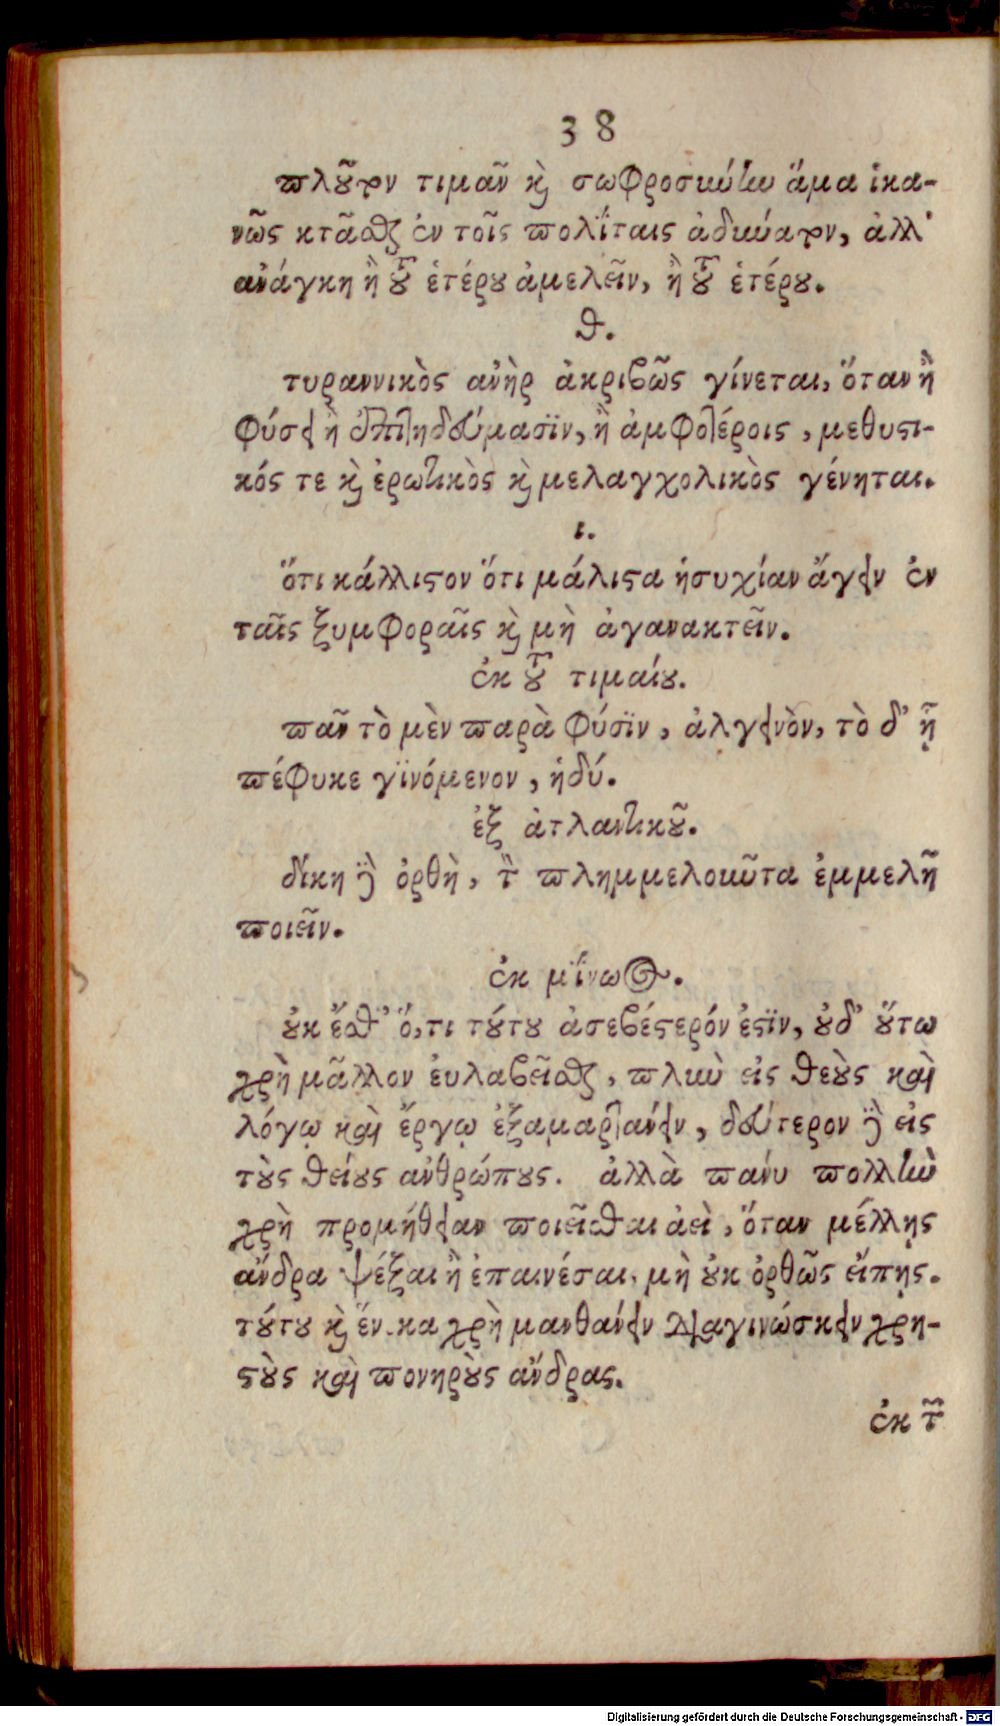 38
πλοῦτον τιμᾶν καὶ σωφροσύνην ἅμα ἱκα-
νῶς κτᾶσθαι ἐν τοῖς πολίταις ἀδύνατον, ἀλλ'
ἀνάγκη ἢ τοῦ ἑτέρου ἀμελεῖν, ἢ τοῦ ἑτέρου.
θ.
τυραννικὸς ἀνὴρ ἀκριβῶς γίνεται, ὅταν ἢ
φύσει ἢ ἐπιτηδεύμασιν, ἢ ἀμφοτέροις, μεθυστι-
κός τε καὶ ἐρωτικὸς καὶ μελαγχολικὸς γένηται.
ι.
ὅτι κάλλιστον ὅτι μάλιστα ἡσυχίαν ἄγειν ἐν
ταῖς ξυμφοραῖς καὶ μὴ ἀγανακτεῖν.
ἐκ τοῦ τιμαίου.
πᾶν τὸ μὲν παρὰ φύσιν, ἀλγεινὸν, τὸ δ' ᾗ
πέφυκε γινόμενον, ἡδύ.
ἐξ ἀτλαντικοῦ.
δίκη δὲ ὀρθὴ, τὸ πλημμελοῦντα ἐμμελῆ
ποιεῖν.
ἐκ μίνωος.
οὐκ ἔσθ' ὅ,τι τούτου ἀσεβέστερόν ἐστιν, οὐδ' οὕτω
χρὴ μᾶλλον εὐλαβεῖσθαι, πλὴν εἰς θεοὺς καὶ
λόγῳ καὶ ἔργῳ ἐξαμαρτάνειν, δεύτερον δὲ εἰς
τοὺς θείους ἀνθρώπους. ἀλλὰ πάνυ πολλὴν
χρὴ προμήθειαν ποιεῖσθαι ἀεὶ, ὅταν μέλλῃς
ἄνδρα ψέξαι ἢ ἐπαινέσαι, μὴ οὐκ ὀρθῶς εἴπῃς.
τούτου καὶ ἕνεκα χρὴ μανθάνειν διαγινώσκειν χρη-
στοὺς καὶ πονηροὺς ἄνδρας.
ἐκ τῶν
Digitalisierung gefördert durch die Deutsche Forschungsgemeinschaft - DFG